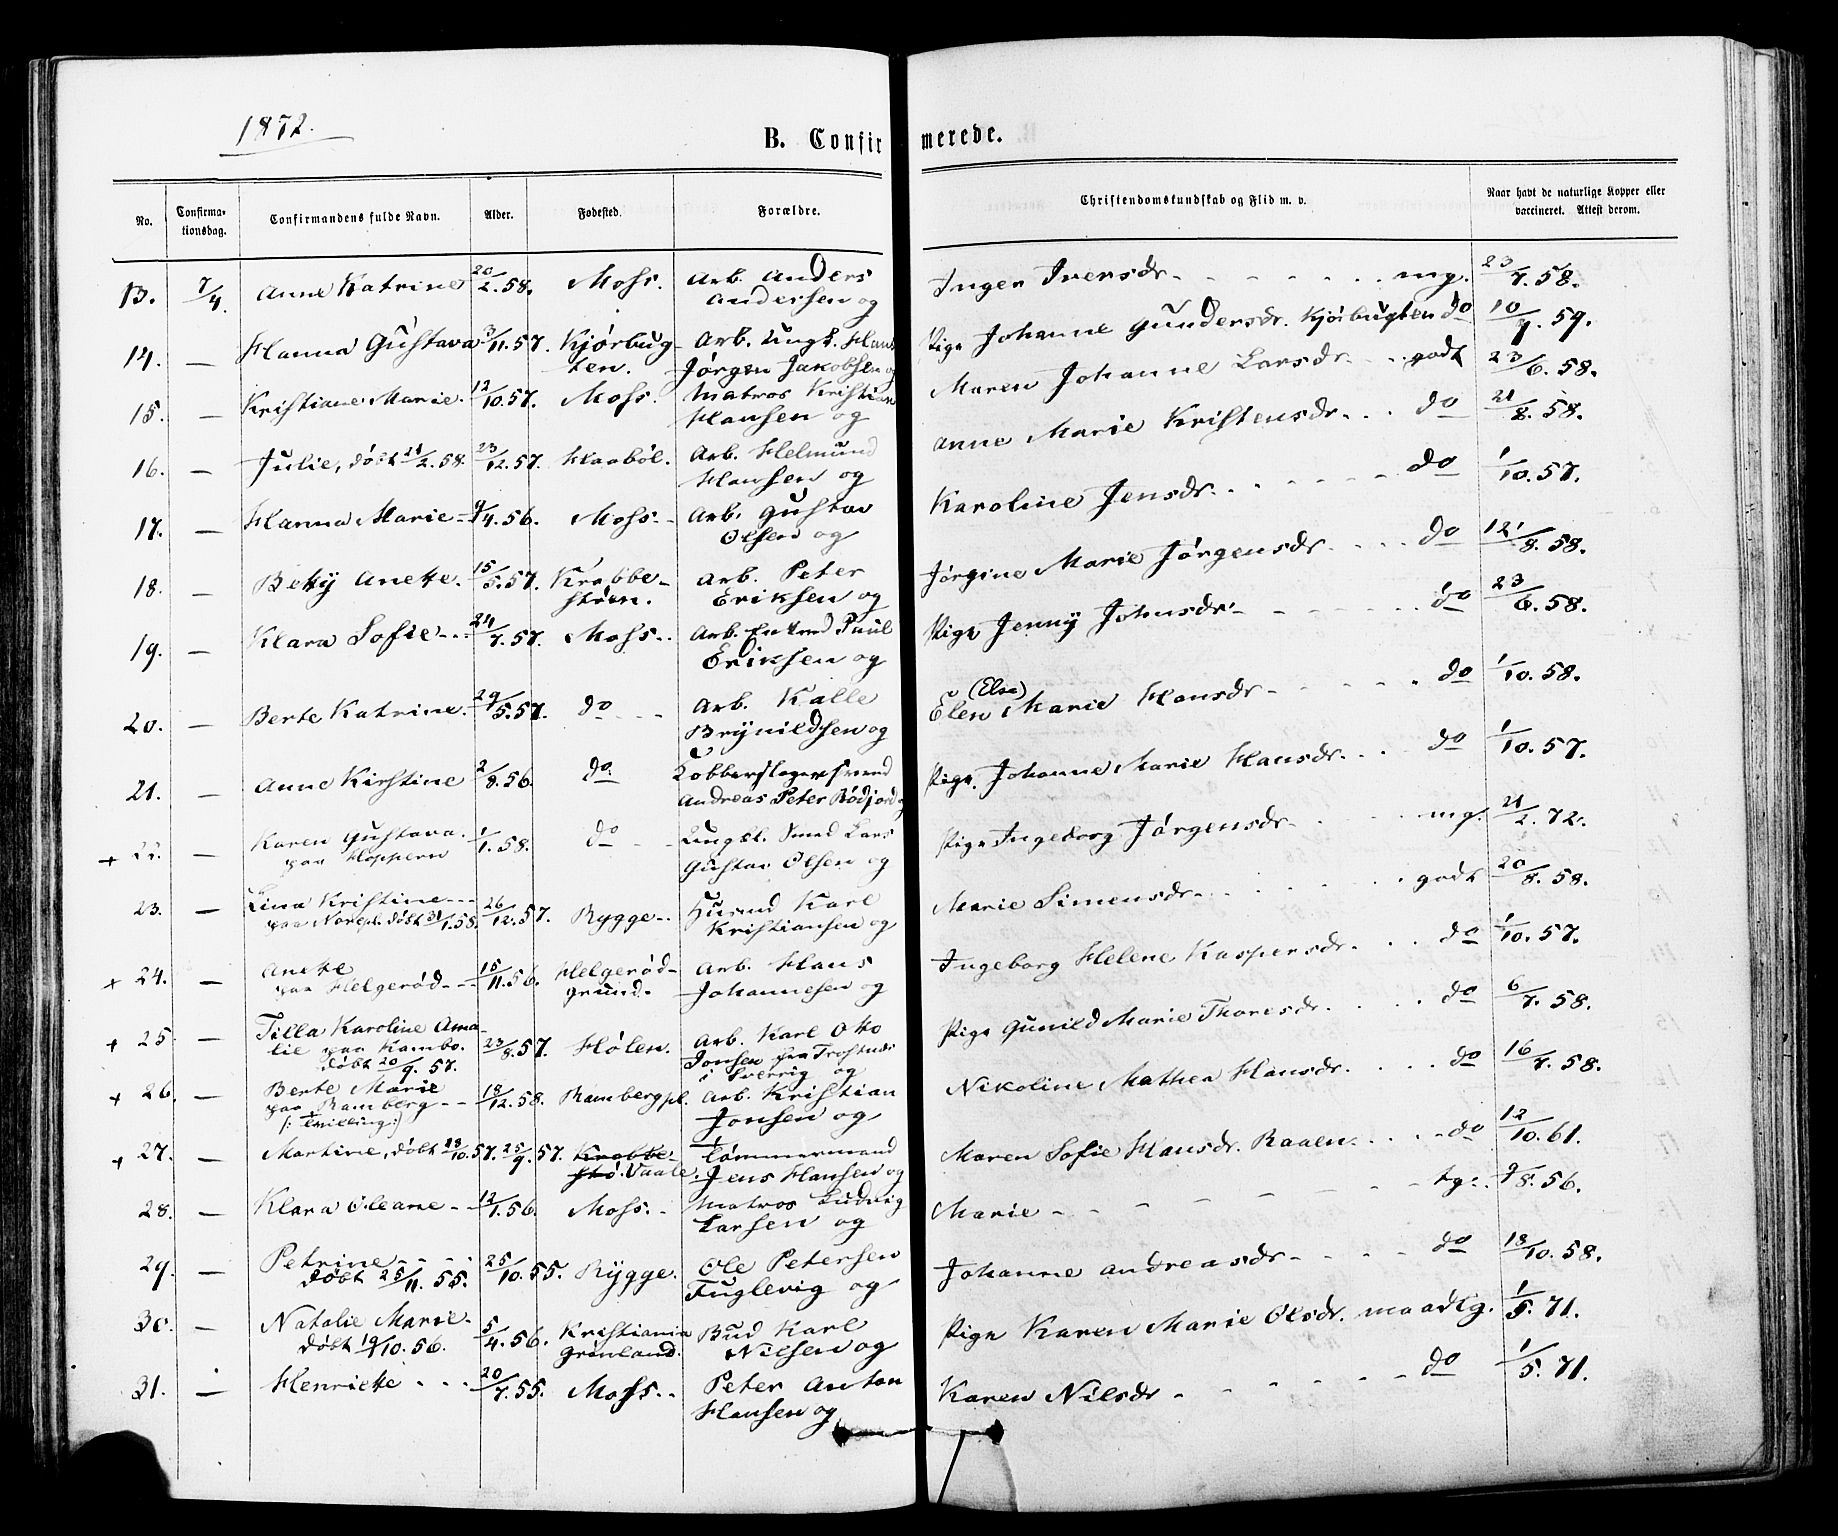 1872.
B. Confirmerede.
No. Confirmationsdag. Confirmandens fulde Navn. Alder. Fødested. Forældre. Christendomskundskab og Flid m. v. Naar havt de naturlige Kopper eller vaccineret. Attest derom.
13. 7/4 Anne Katrine 20/2.58. Moss. Arb. Anders Andersen og Inger Iversdr. mg. 23/7.58.
14. — Hanna Gustava 3/11.57. Kjørbugten. Arb. Ungk. Hans Jørgen Jakobsen og Pige Johanne Gundersdr. Kjørbugten do 10/7.59.
15. — Kristiane Marie. 12/10.57. Moss. Matros Kristian Hansen og Maren Johanne Larsdr. godt 23/6.58.
16. — Julie, døbt 21/2.58. 23/12.57. Haabøl. Arb. Helmund Hansen og Anne Marie Kristensdr. do 21/8.58.
17. — Hanna Marie 9/4.56. Moss. Arb. Gustav Olsen og Karoline Jensdr. do 1/10.57.
18. — Beky Anette. 15/5.57. Krabbestøen. Arb. Peter Eriksen og Jørgine Marie Jørgensdr. do 12/8.58.
19. — Klara Sofie 24/7.57. Moss. Arb. Enkemd Paul Eriksen og Pige Jenny Johnsdr. do 23/6.58.
20. — Berte Katrine. 29/5.57. do Arb. Kalle Brynildsen og Elen (Else) Marie Hansdr. do 1/10.58.
21. — Anne Kirstine 2/8.56. do Kobberslagersvend Andreas Peter Rødfjord og Pige Johanne Marie Hansdr. do 1/10.57.
+ 22. — Karen Gustava. paa Hoppern 1/1.58. do Ungk. Smed Lars Gustav Olsen og Pige Ingeborg Jørgensdr. mg. 21/2.72.
23. — Lina Kristine paa Norepl. døbt 31/1.58. 26/12.57. Rygge Husmd Karl Kristiansen og Marie Simensdr. godt 20/8.58.
+ 24. — Anette paa Helgerød 15/11.56. Helgerødgrund. Arb. Hans Johannesen og Ingeborg Helene Kaspersdr. do 1/10.57.
+ 25. — Tilla Karoline Amalie paa Kambo. døbt 20/9.57. 23/8.57. Hølen. Arb. Karl Otto Jonsen fra i Sverrig og Pige Gunild Marie Thoresdr. do 6/7.58.
+ 26. — Berte Marie paa Ramberg /: Tvilling:/ 18/12.58. Rambergpl. Arb. Kristian Jonsen og Nikoline Mathea Hansdr. do 16/7.58.
+ 27. — Martine, døbt 18/10.57. 25/9.57. Krabbestø. Vaale. Tømmermand Jens Hansen og Maren Sofie Hansdr. Raaen. do 12/10.61.
28. — Klara Oleane 12/1.56. Moss. Matros Ludvig Larsen og Marie tg. 9/8.56.
29. — Petrine døbt 25/11.55. 25/10.55. Rygge. Ole Petersen Fuglevig og Johanne Andreasdr do 18/10.58.
30. — Natalie Marie. døbt 19/10.56. 5/4.56. Kristiania Grønland. Bud Karl Nilsen og Pige Karen Marie Olsdr. maadtg. 1/5.71.
31. — Henriette 20/7.55. Moss. Peter Anton Hansen og Karen Nilsdr do 1/5.71.